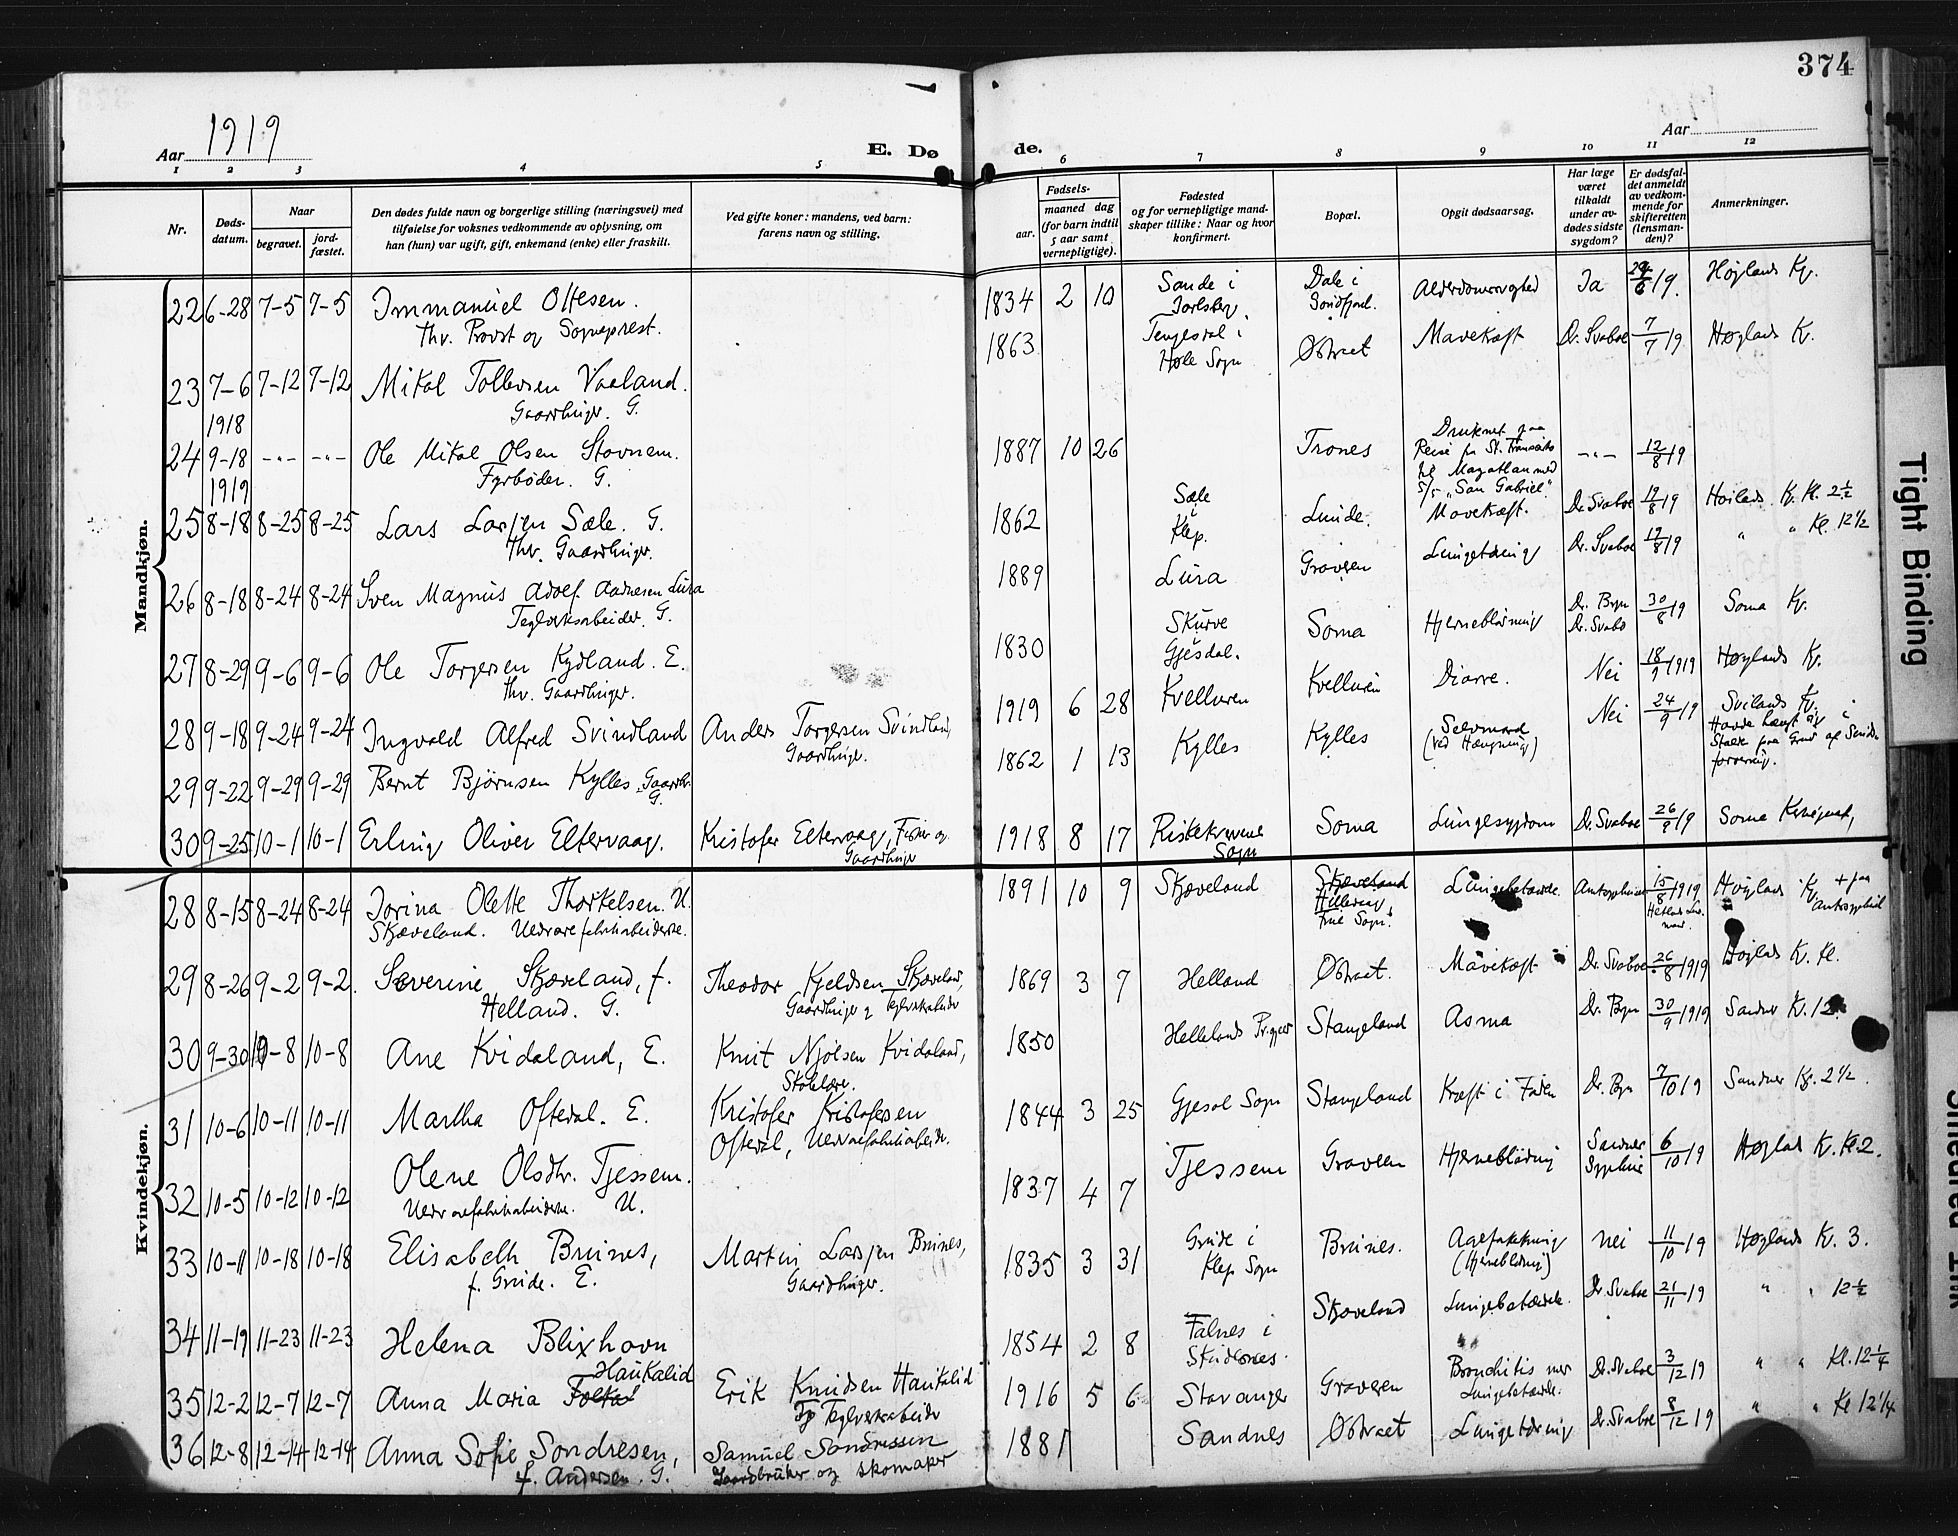 374
Aar 1919
E. Dø de.
Aar
1 2 3 4 5 6 7 8 9 10 11 12
Nr.
Døds-
datum.
Naar
begravet.
jord-
fæstet.
Den dødes fulde navn og borgerlige stilling (næringsvei) med
tilføielse for voksnes vedkommende av oplysning, om
han (hun) var ugift, gift, enkemand (enke) eller fraskilt.
Ved gifte koner: mandens, ved barn:
farens navn og stilling.
Fødsels-
aar.
maaned dag
(for barn indtil
5 aar samt
vernepligtige).
Fødested
og for vernepligtige mand-
skaper tillike: Naar og hvor
konfirmert.
Bopæl.
Opgit dødsaarsag.
Har læge
været
tilkaldt
under av-
dødes sidste
sygdom?
Er dødsfal-
det anmeldt
av vedkom-
mende for
skifteretten
(lensman-
den)?
Anmerkninger.
Mandkjøn.
22 6-28 7-5 7-5 Immanuel Oftesen.
Thv. Provst og Sogneprest.
1834 2 10 Sande i
Jarlsberg.
Dale i
Søndfjord.
Alderdomssvaghed Ja 19. Høylands K.
23 7-6 7-12 7-12 Mikal Tollevsen Vaaland.
Gaardbruger. G.
1863 Tengesdal i
Høle Sogn Østraet Mavekræft Dr. Svaboe 7/7 19 Høylands K.
1918
24 9-18 -"- -"- Ole Mikal Olsen Stavnem.
Fyrbøder. G.
1887 10 26 Trones
Druknet paa
Reise fra St. Fransisko
til Mazatlan med
S/S "San Gabriel".
-"- 12/8 19
1919
25 8-18 8-25 8-25 Lars Larsen Sæle. G.
Thv. Gaardbruger.
1862 Sæle
Klep. Lunde. Mavekræft. Dr. Svaboe 19/8 19 K. Kl. 2½
26 8-18 8-24 8-24 Sven Magnus Adolf Aadnesen Lura
Teglverksarbeider. G.
1889 Lura Graveren Lungetæring Dr. Svaboe 19/8 19 " " Kl. 12½
27 8-29 9-6 9-6 Ole Torgersen Kydland. E.
Thv. Gaardbruger.
1830 Skurve
Gjesdal. Soma Hjerneblødning Dr. Bryn
Dr. Svabo 30/8 19 Soma K.
28 9-18 9-24 9-24 Ingvald Alfred Svindland Anders Torgersen Svindland,
Gaardbruger.
1919 6 28 Kvelluren Kvelluren Diarre. Nei 18/9 1919 Høylands K.
29 9-22 9-29 9-29 Bernt Bjørnsen Kylles, Gaardbr.
G.
1862 1 13 Kylles Kylles Selvmord
(ved Hængning) Nei 24/9 19 Svilands K.
Havde hængt sig i
Stalden paa Grund af Sinds-
forvirring.
30 9-25 10-1 10-1 Erling Oliver Eltervaag. Kristofer Eltervaag, Fisker og
Gaardbruger
1918 8 17
Sogn Soma Lungesygdom Dr. Svaboe 26/9 19 Soma
Kvindekjøn.
28 8-15 8-24 8-24 Jorina Olette Thorkelsen. U.
Skæveland. Uldvarefabrikarbeiderske.
1891 10 9 Skæveland Skæveland
Hillevåg,
Frue Sogn. Lungebetændelse. 15/8 1919 Høylands K.
29 8-26 9-2 9-2 Severine Skæveland, f.
Helland. G.
Theodor Kjeldsen Skæveland,
Gaardbruger og Teglverksarbeider
1869 3 7 Helland Østraet. Mavekræft Dr. Svaboe 26/8 1919 Høylands K. Kl.
30 9-30 10-8 10-8 Ane Kvidaland, E. Knut Njølsen Kvidaland,
Skolelære.
1850 Hellelands Stangeland Asma Dr. Bryn 30/9 1919 Sandnes K. 12.
31 10-6 10-11 10-11 Martha Oftedal. E. Kristofer Kristofersen
Oftedal, Uldvarefabrikarbeider.
1844 3 25 Gjesdal Sogn Stangeland Kræft i Foden Dr. Bryn 7/10 19 Sandnes K. 2½.
32 10-5 10-12 10-12 Olene Olsdtr. Tjessem.
Uldvarefabrikarbeiderske. U.
1837 4 7 Tjessem Graveren Hjerneblødning Sandnes
Sygehus 6/10 19 Høyland K. Kl. 2.
33 10-11 10-18 10-18 Elisabeth Bruines,
f. Grude. E.
Martin Larsen Bruines,
Gaardbruger.
1835 3 31 Grude i
Klep Sogn Bruines.
(Hjerneblødning) Nei 11/10 19 Høylands K. 3.
34 11-19 11-23 11-23 Helena Blixhavn
1854 2 8 Falnes i
Skudesnes. Skæveland Lungebetændelse. Dr. Svaboe 21/11 19 " " 12½
35 12-2 12-7 12-7 Anna Maria Haukalid Erik Knudsen Haukalid
Teglverksarbeider
1916 5 6 Stavanger Graveren Bronchitis med
Lungebetændelse. Dr. Svaboe 3/12 19 " " Kl. 12¼
36 12-8 12-14 12-14 Anna Sofie Sondresen,
f. Andersen. G.
Samuel Sondressen
Gaardbruker og skomaker
1881 Sandnes Østraet Lungetæring Dr. Svaboe 8/12 19 " " Kl 12¼
Tight Binding